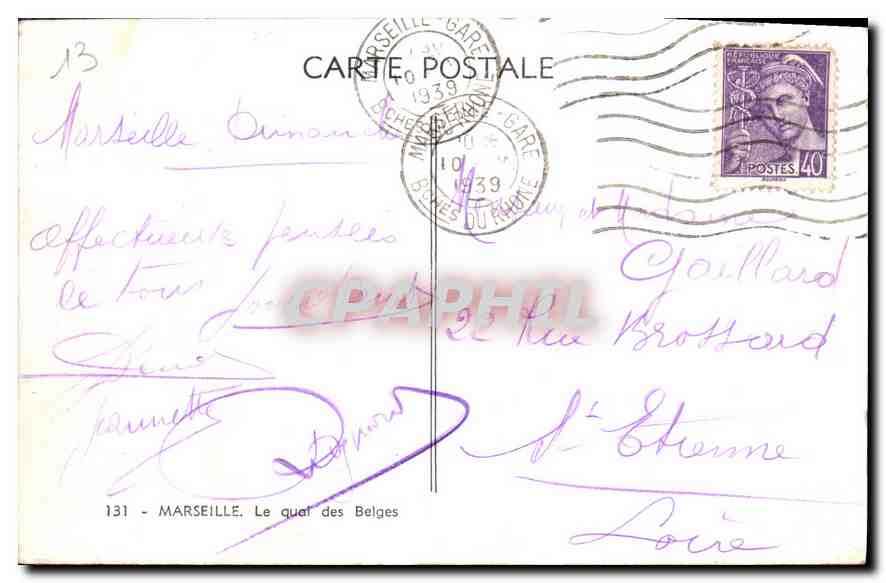 13
CARTE POSTALE
MARSEILLE-GARE
10
1939
BCHES DU RHONE
MARSEILLE-GARE
10
1939
BCHES DU RHONE
RÉPUBLIQUE
FRANÇAISE
POSTES 40c
Marseille Dimanche
affectueuses pensées
de tous
Jeannette
Monsieur et Madame
Gaillard
22 Rue Brossard
St Etienne
Loire
CPAPHIL
131 - MARSEILLE. Le quai des Belges